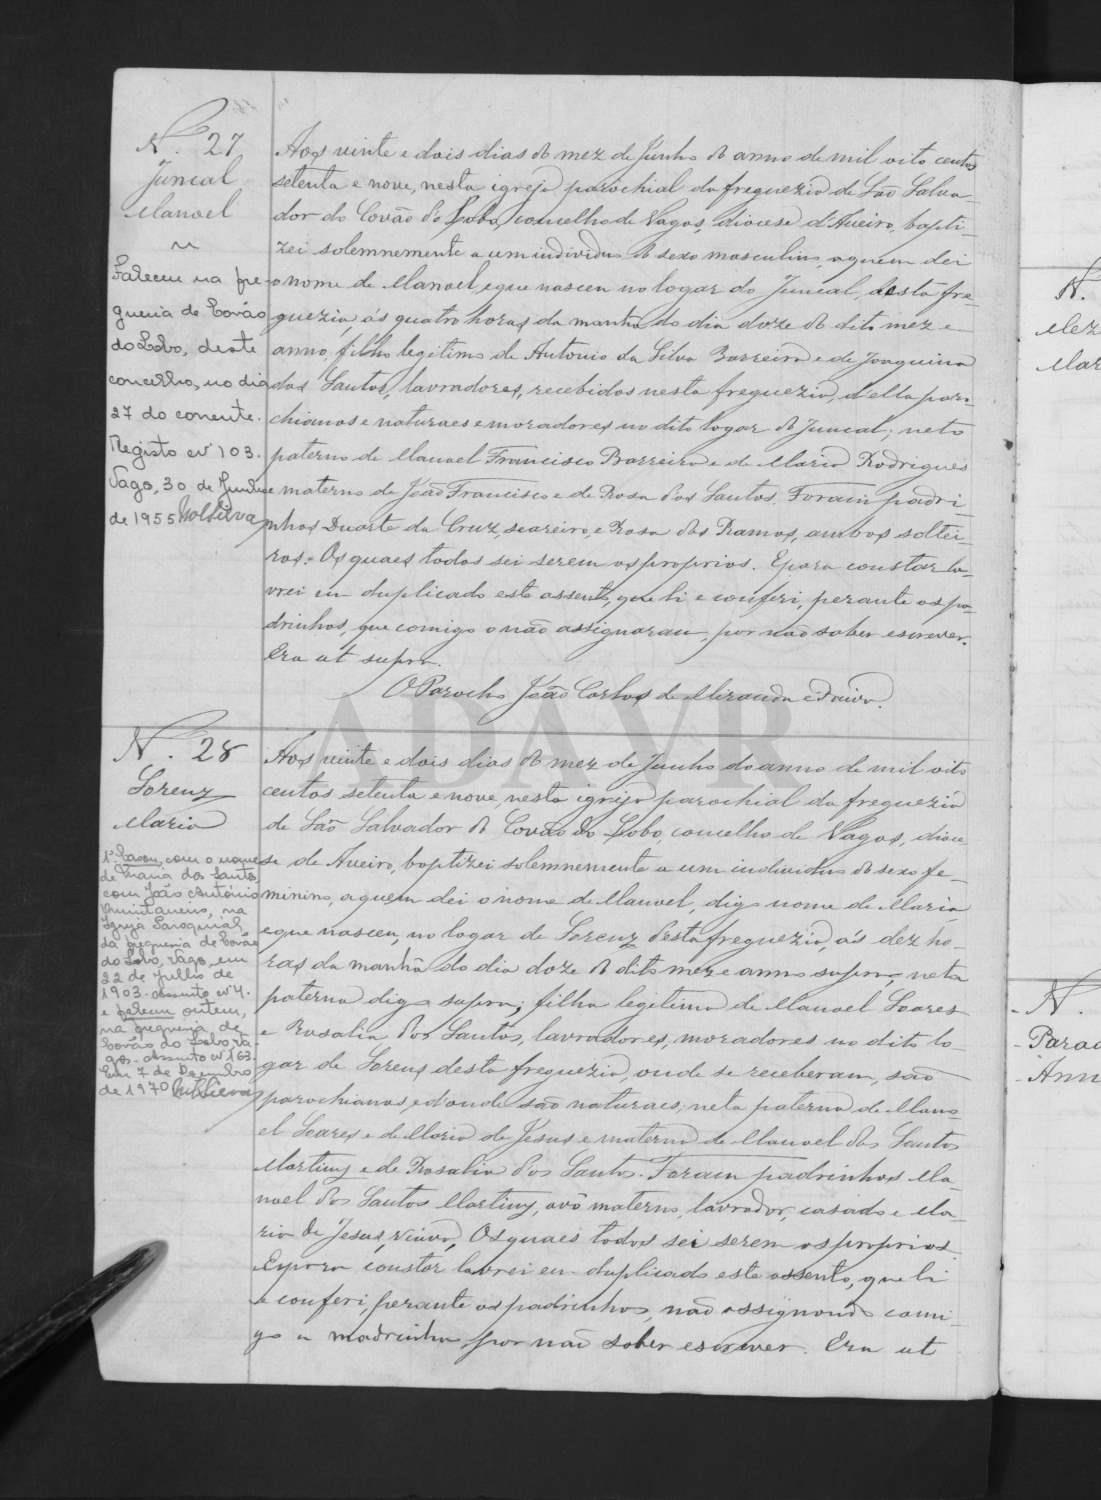 N.º 27
Juncal
Manoel
Faleceu na fre-
guesia de Covão
do Lobo, deste
concelho, no dia
27 do corrente.
Registo nº 103.
Vagos, 30 de Junho
de 1955
Aos vinte e dois dias do mez de Junho do anno de mil oito centos
setenta e nove, nesta igreja parochial da freguezia de São Salva-
dor do Covão do Lobo, concelho de Vagos, diocese d'Aveiro, bapti-
zei solemnemente a um individuo do sexo masculino, a quem dei
o nome de Manoel, e que nasceu no logar do Juncal, desta fre-
guezia, ás quatro horas da manhã do dia doze do dito mez e
anno, filho legitimo de Antonio da Silva Barreira e de Joaquina
dos Santos, lavradores, recebidos nesta freguezia, d'ella paro-
chianos e naturaes e moradores no dito logar do Juncal; neto
paterno de Manoel Francisco Barreira e de Maria Rodrigues
e materno de João Francisco e de Rosa dos Santos. Foram padri-
nhos Duarte da Cruz, seareiro, e Rosa dos Ramos, ambos soltei-
ros. Os quaes todos sei serem os proprios. E para constar la-
vrei em duplicado este assento, que li e conferi, perante os pa-
drinhos, que comigo o não assignaram, por não saber escrever.
Era ut supra.
O Parocho João Carlos de Miranda
ADAVR
N.º 28
Lorenz
Maria
1º Casou, com o nome
de Maria dos Santos
com João António
na
Igreja Paroquial
da freguesia de Covão
do Lobo, Vagos, em
22 de Julho de
1903. Assento nº 4.
e faleceu ontem,
na freguesia de
Covão do Lobo, Va-
gos. Assento nº 163.
Em 7 de Dezembro
de 1970
Aos vinte e dois dias do mez de Junho do anno de mil oito
centos setenta e nove, nesta igreja parochial da freguezia
de São Salvador do Covão do Lobo, concelho de Vagos, dioce-
se de Aveiro, baptizei solemnemente a um individuo do sexo fe-
minino, a quem dei o nome de Manoel, digo nome de Maria
e que nasceu, no logar de Lorenz desta freguezia, ás dez ho-
ras da manhã do dia doze do dito mez e anno supra, neta
paterna digo supra; filha legitima de Manoel Soares
e Rosalia dos Santos, lavradores, moradores no dito lo-
gar de Lorenz desta freguezia, onde se receberam, são
parochianos, e d'onde são naturaes; neta paterna de Mano-
el Soares e de Maria de Jesus e materna de Manoel dos Santos
Martins e de Rosalia dos Santos. Foram padrinhos Ma-
noel dos Santos Martins, avô materno, lavrador, casado e Ma-
ria de Jesus, viuva, Os quaes todos sei serem os proprios.
E para constar lavrei em duplicado este assento, que li
e conferi, perante os padrinhos, não assignando comi-
go a madrinha por não saber escrever. Era ut
N.
Mez
Mar
N.
Parad
Ann